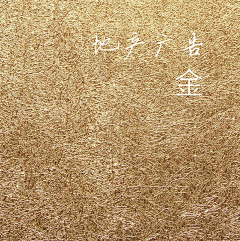 地产广告
金